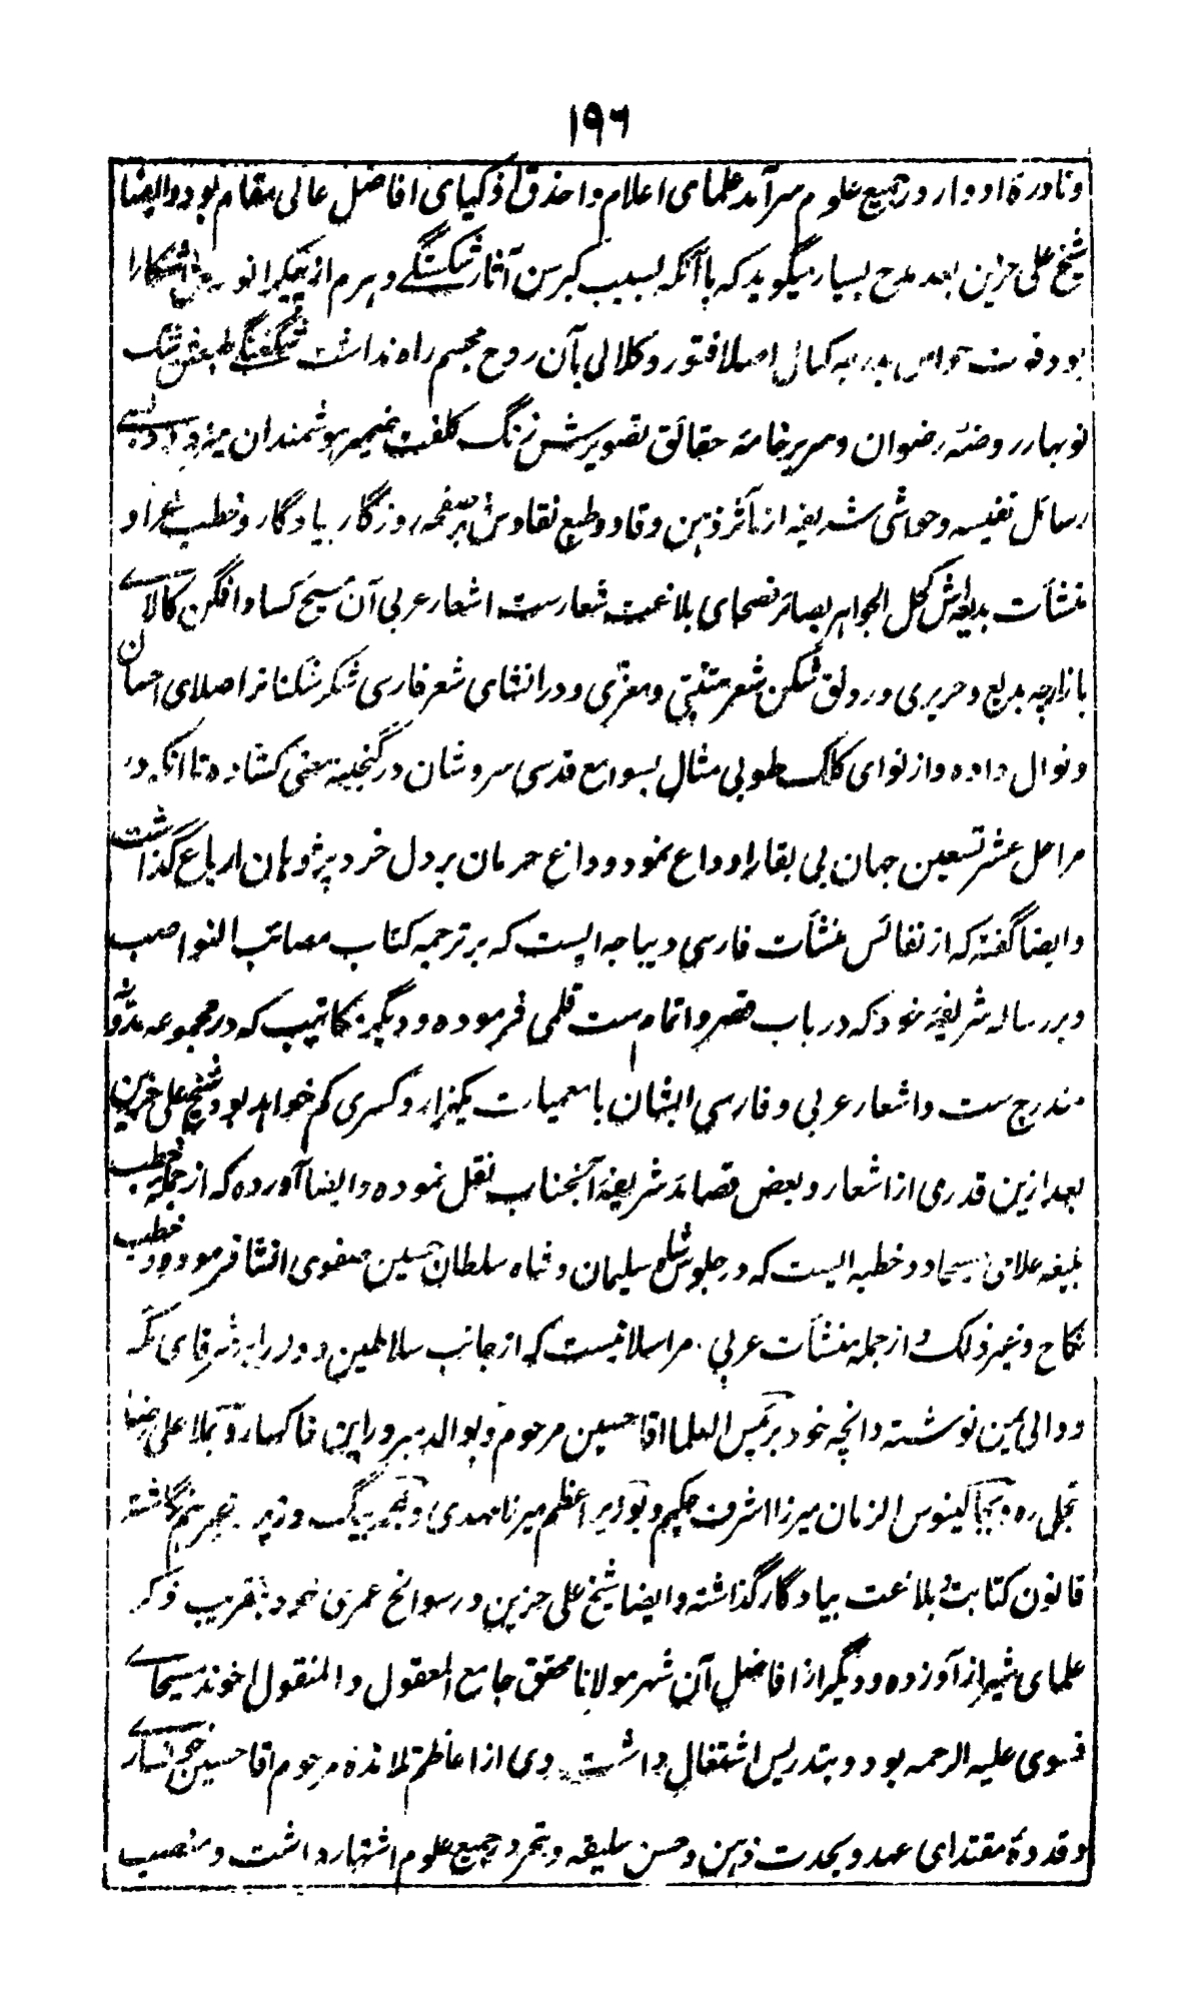 ۱۹۶
و نادرهٔ ادوار و در جمیع علوم سرآمد علمای اعلام و احذق اذکیای افاضل عالی مقام بود و ایضا
شیخ علی حزین بعد مدح بسیار میگوید که با آنکه بسبب کبر سن آثار شکستگے و هرم از پیکر انورش آشکارا
بود قوت حواس بدرجه کمال اصلا فتور و کلالی بآن روح مجسم راه نداشت شگفتگے طبعش رشک
نوبهار روضهٔ رضوان و صریر خامهٔ حقائق تصویرش زنگ کلفت ضمیر هوشمندان میزدود بسے
رسائل نفیسه و حواشی شریفه از مآثر ذهن وقاد و طبع نقادش بر صفحه روزگار یادگار و خطب غرا و
منشآت بدیعه‌اش کحل الجواهر بصائر فصحای بلاغت شعارست اشعار عربی آن مسیح کساد افگن کالاے
بازارچه بدیع و حریری و رونق شکن شعر متنبی و معزی و در انشای شعر فارسی شکر شکنانرا صلای احسان
و نوال داده و از نوای کلک طوبی مثال بسوامع قدسی سروشان در گنجینه معنی کشاده تا آنکه در
مراحل عشر تسعین جهان بی بقارا وداع نمود و داغ حرمان بر دل خرد پژوهان ارباع گذاشت
و ایضا گفته که از نفائس منشآت فارسی دیباجه ایست که بر ترجمه کتاب مصائب النواصب
و بر رساله شریفه خود که در باب قصر و اتمام ست قلمی فرموده و دیگر مکاتیب که در مجموعه مدونه
مندرج ست و اشعار عربی و فارسی ایشان با معمیات یکهزار و کسری کم خواهد بود و شیخ علی حزین
بعد ازین قدری از اشعار و بعض قصائد شریفه آنجناب نقل نموده و ایضا آورده که از جمله خطب
بلیغه علامی مسیحا دو خطبه ایست که در جلوس شاه سلیمان و شاه سلطان حسین صفوی انشا فرموده و خطب
نکاح و غیر ذلک و از جمله منشآت عربی مراسلاتیست که از جانب سلاطین و وزرا بشرفای مکه
و والی یمن نوشته و انچه خود برئیس العلما اقا حسین مرحوم و بوالد مبرور این خاکسار و بملا علی رضا
تجلی ره و بجالینوس الزمان میرزا اشرف حکیم و بوزیر اعظم میرزا مهدی و بمحمد بیگ وزیر نگاشته
قانون کتابت و بلاغت بیادگار گذاشته و ایضا شیخ علی حزین در سوانح عمری خود بتقریب ذکر
علمای شیراز آورده و دیگر از افاضل آن شهر مولانا محقق جامع المعقول و المنقول اخوند مسیحاے
فسوی علیه الرحمه بود و بتدریس اشتغال داشت وی از اعاظم تلامذه مرحوم اقا حسین خوانسارے
و قدوهٔ مقتدای عهد و بحدت ذهن و حسن سلیقه و تبحر در جمیع علوم اشتهار داشت و منصب